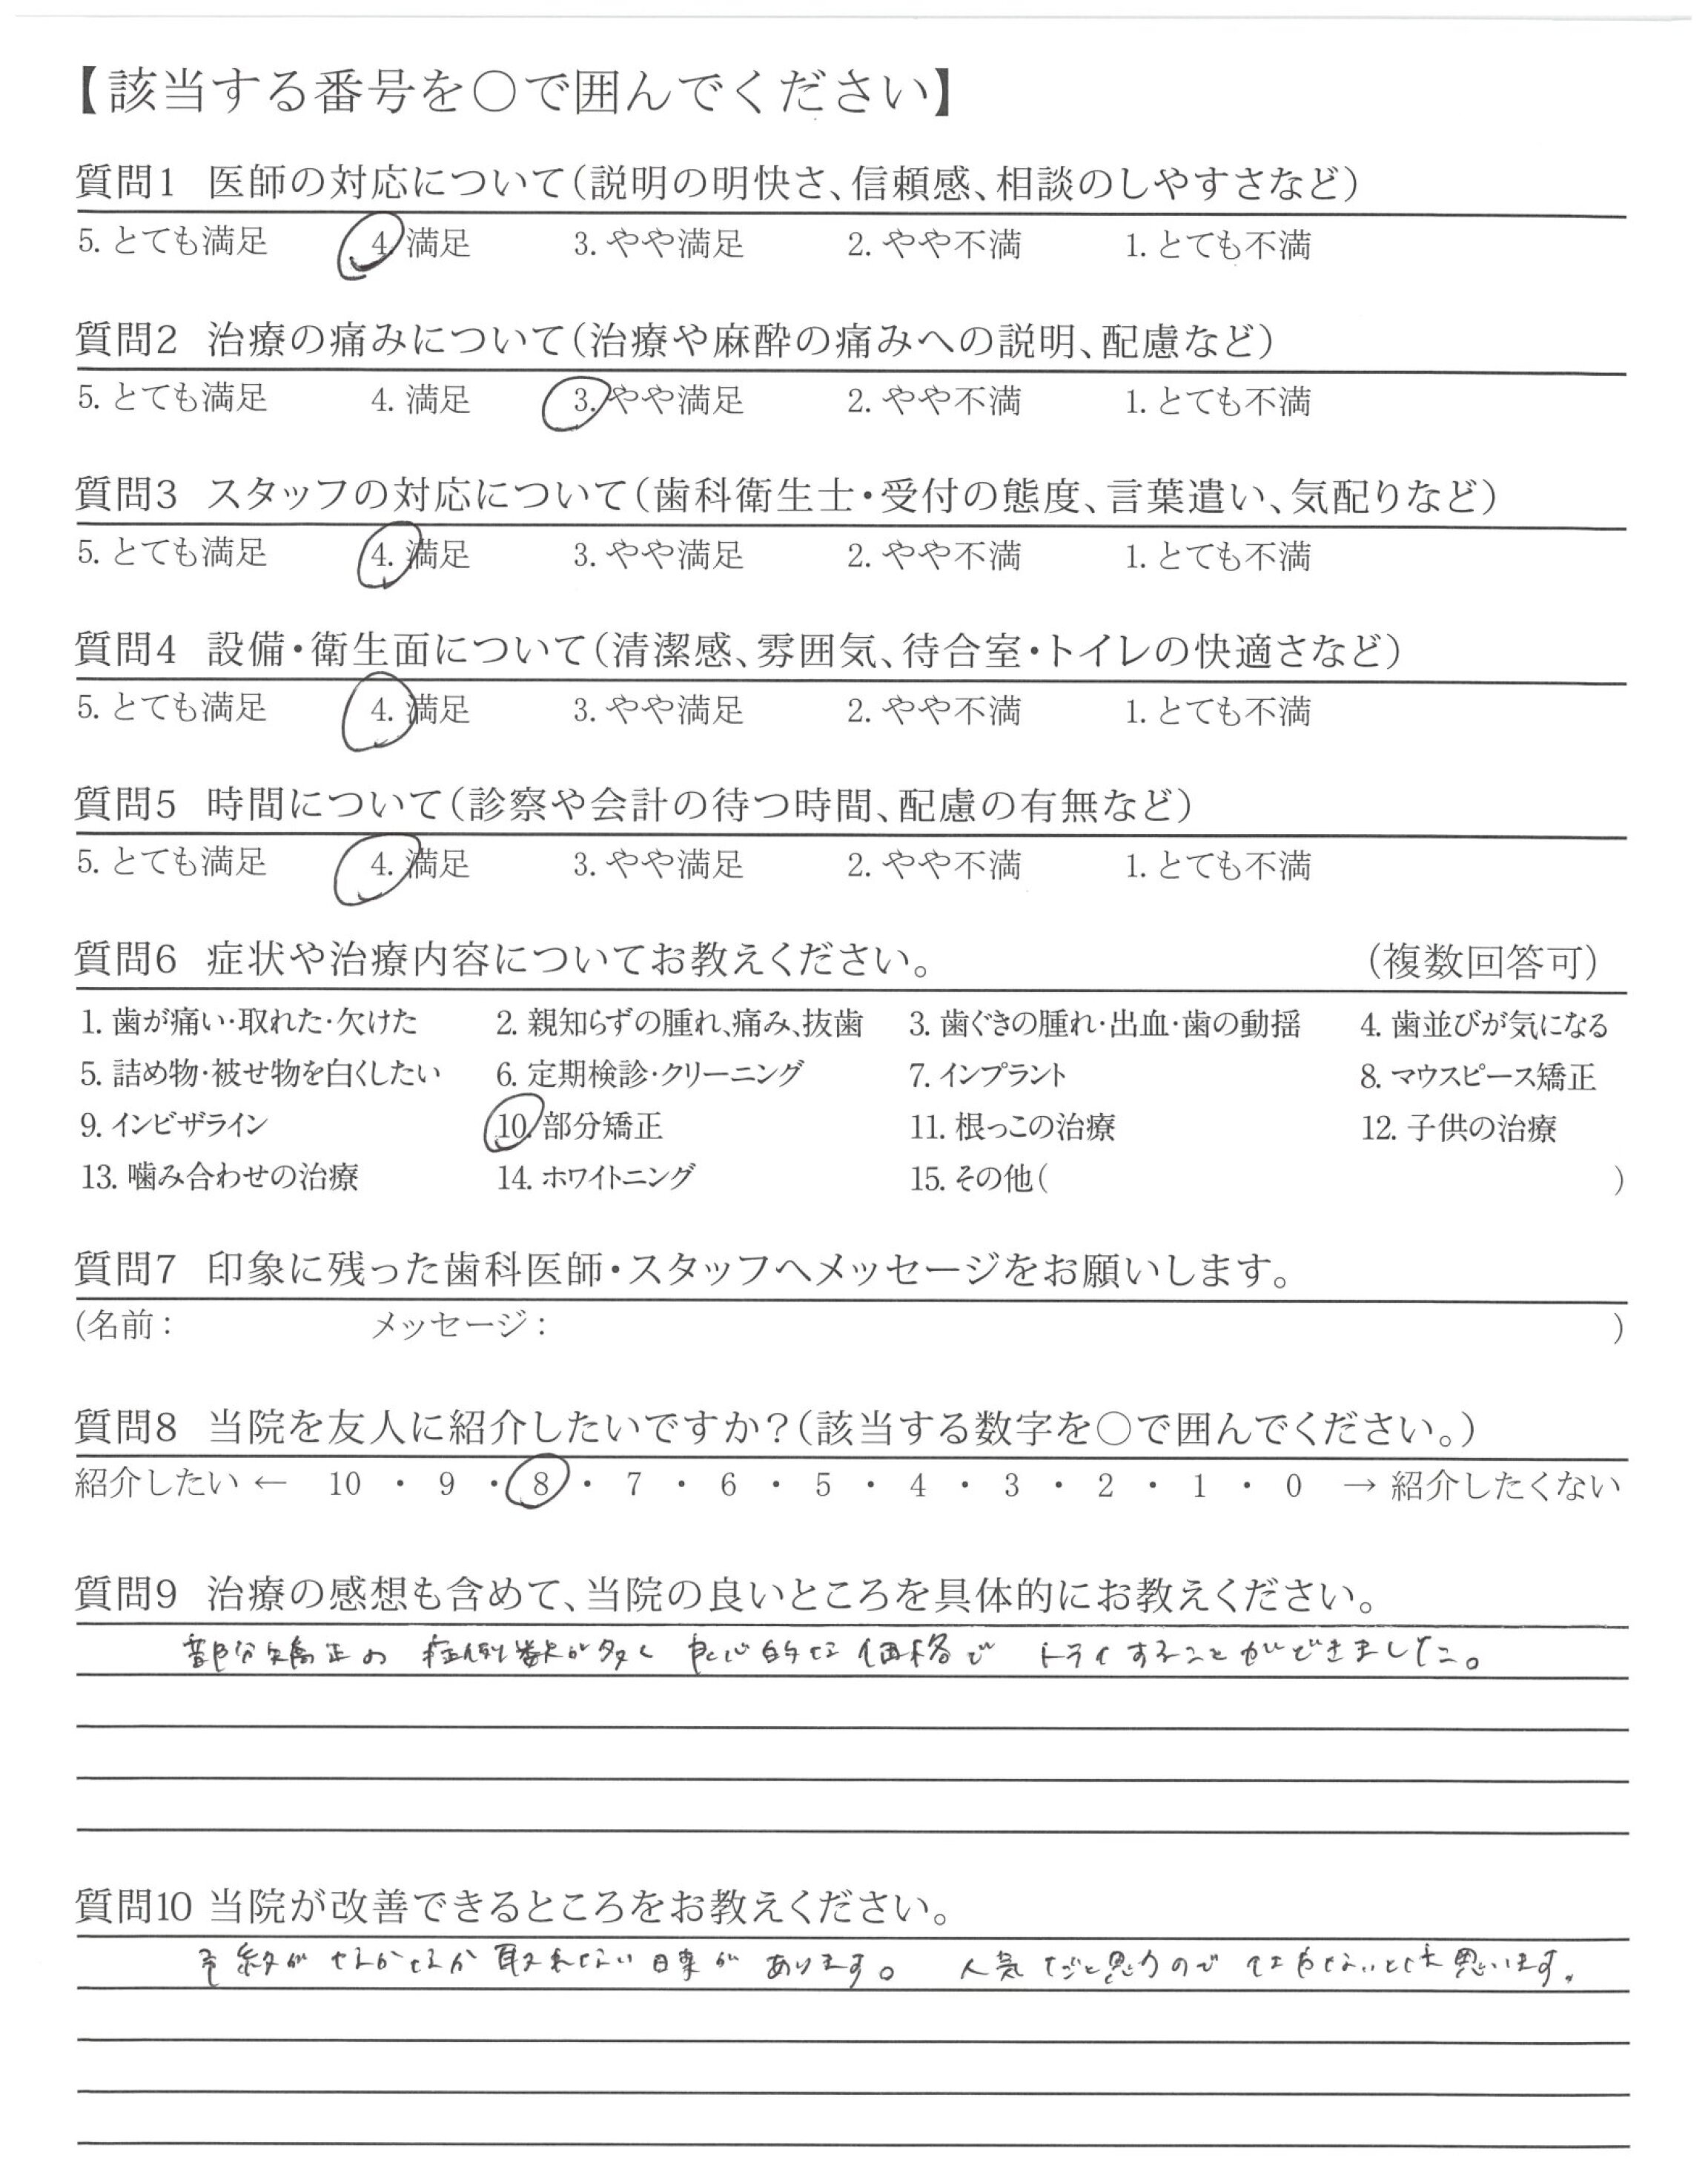 【該当する番号を〇で囲んでください】
質問1 医師の対応について(説明の明快さ、信頼感、相談のしやすさなど)
5. とても満足 4. 満足 3. やや満足 2. やや不満 1. とても不満
質問2 治療の痛みについて(治療や麻酔の痛みへの説明、配慮など)
5. とても満足 4. 満足 3. やや満足 2. やや不満 1. とても不満
質問3 スタッフの対応について(歯科衛生士・受付の態度、言葉遣い、気配りなど)
5. とても満足 4. 満足 3. やや満足 2. やや不満 1. とても不満
質問4 設備・衛生面について(清潔感、雰囲気、待合室・トイレの快適さなど)
5. とても満足 4. 満足 3. やや満足 2. やや不満 1. とても不満
質問5 時間について(診察や会計の待つ時間、配慮の有無など)
5. とても満足 4. 満足 3. やや満足 2. やや不満 1. とても不満
質問6 症状や治療内容についてお教えください。 (複数回答可)
1. 歯が痛い・取れた・欠けた 2. 親知らずの腫れ、痛み、抜歯 3. 歯ぐきの腫れ・出血・歯の動揺 4. 歯並びが気になる
5. 詰め物・被せ物を白くしたい 6. 定期検診・クリーニング 7. インプラント 8. マウスピース矯正
9. インビザライン 10. 部分矯正 11. 根っこの治療 12. 子供の治療
13. 噛み合わせの治療 14. ホワイトニング 15. その他( )
質問7 印象に残った歯科医師・スタッフへメッセージをお願いします。
(名前： メッセージ： )
質問8 当院を友人に紹介したいですか？(該当する数字を〇で囲んでください。)
紹介したい ← 10 ・ 9 ・ 8 ・ 7 ・ 6 ・ 5 ・ 4 ・ 3 ・ 2 ・ 1 ・ 0 → 紹介したくない
質問9 治療の感想も含めて、当院の良いところを具体的にお教えください。
部分矯正の 症例数が多く 良心的な 価格で トライすることができました。
質問10 当院が改善できるところをお教えください。
予約が なかなか 取れない 日車が あります。 人気だと思うので 思います。